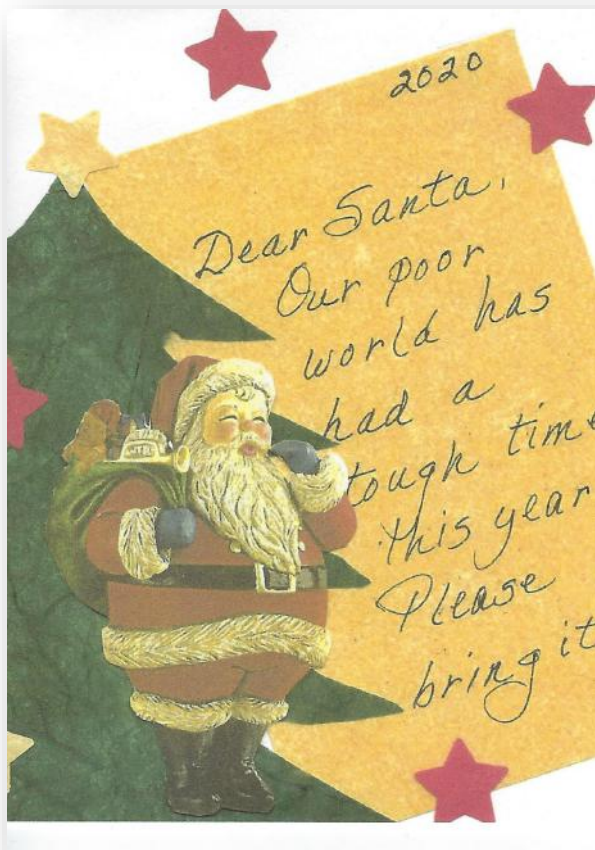 2020
Dear Santa,
Our poor
world has
had a
tough time
this year
Please
bring it